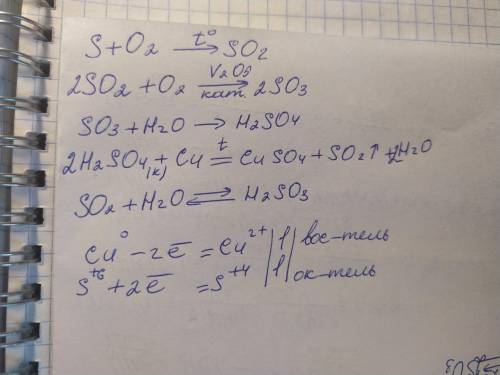 S + O2 —t°→ SO2
2SO2 + O2 —V2O5 / кат.→ 2SO3
SO3 + H2O → H2SO4
2H2SO4(к) + Cu =t= CuSO4 + SO2↑ + 2H2O
SO2 + H2O ⇄ H2SO3
Cu⁰ − 2e̅ = Cu²⁺ | 1 | вос-тель
S⁺⁶ + 2e̅ = S⁺⁴ | 1 | ок-тель